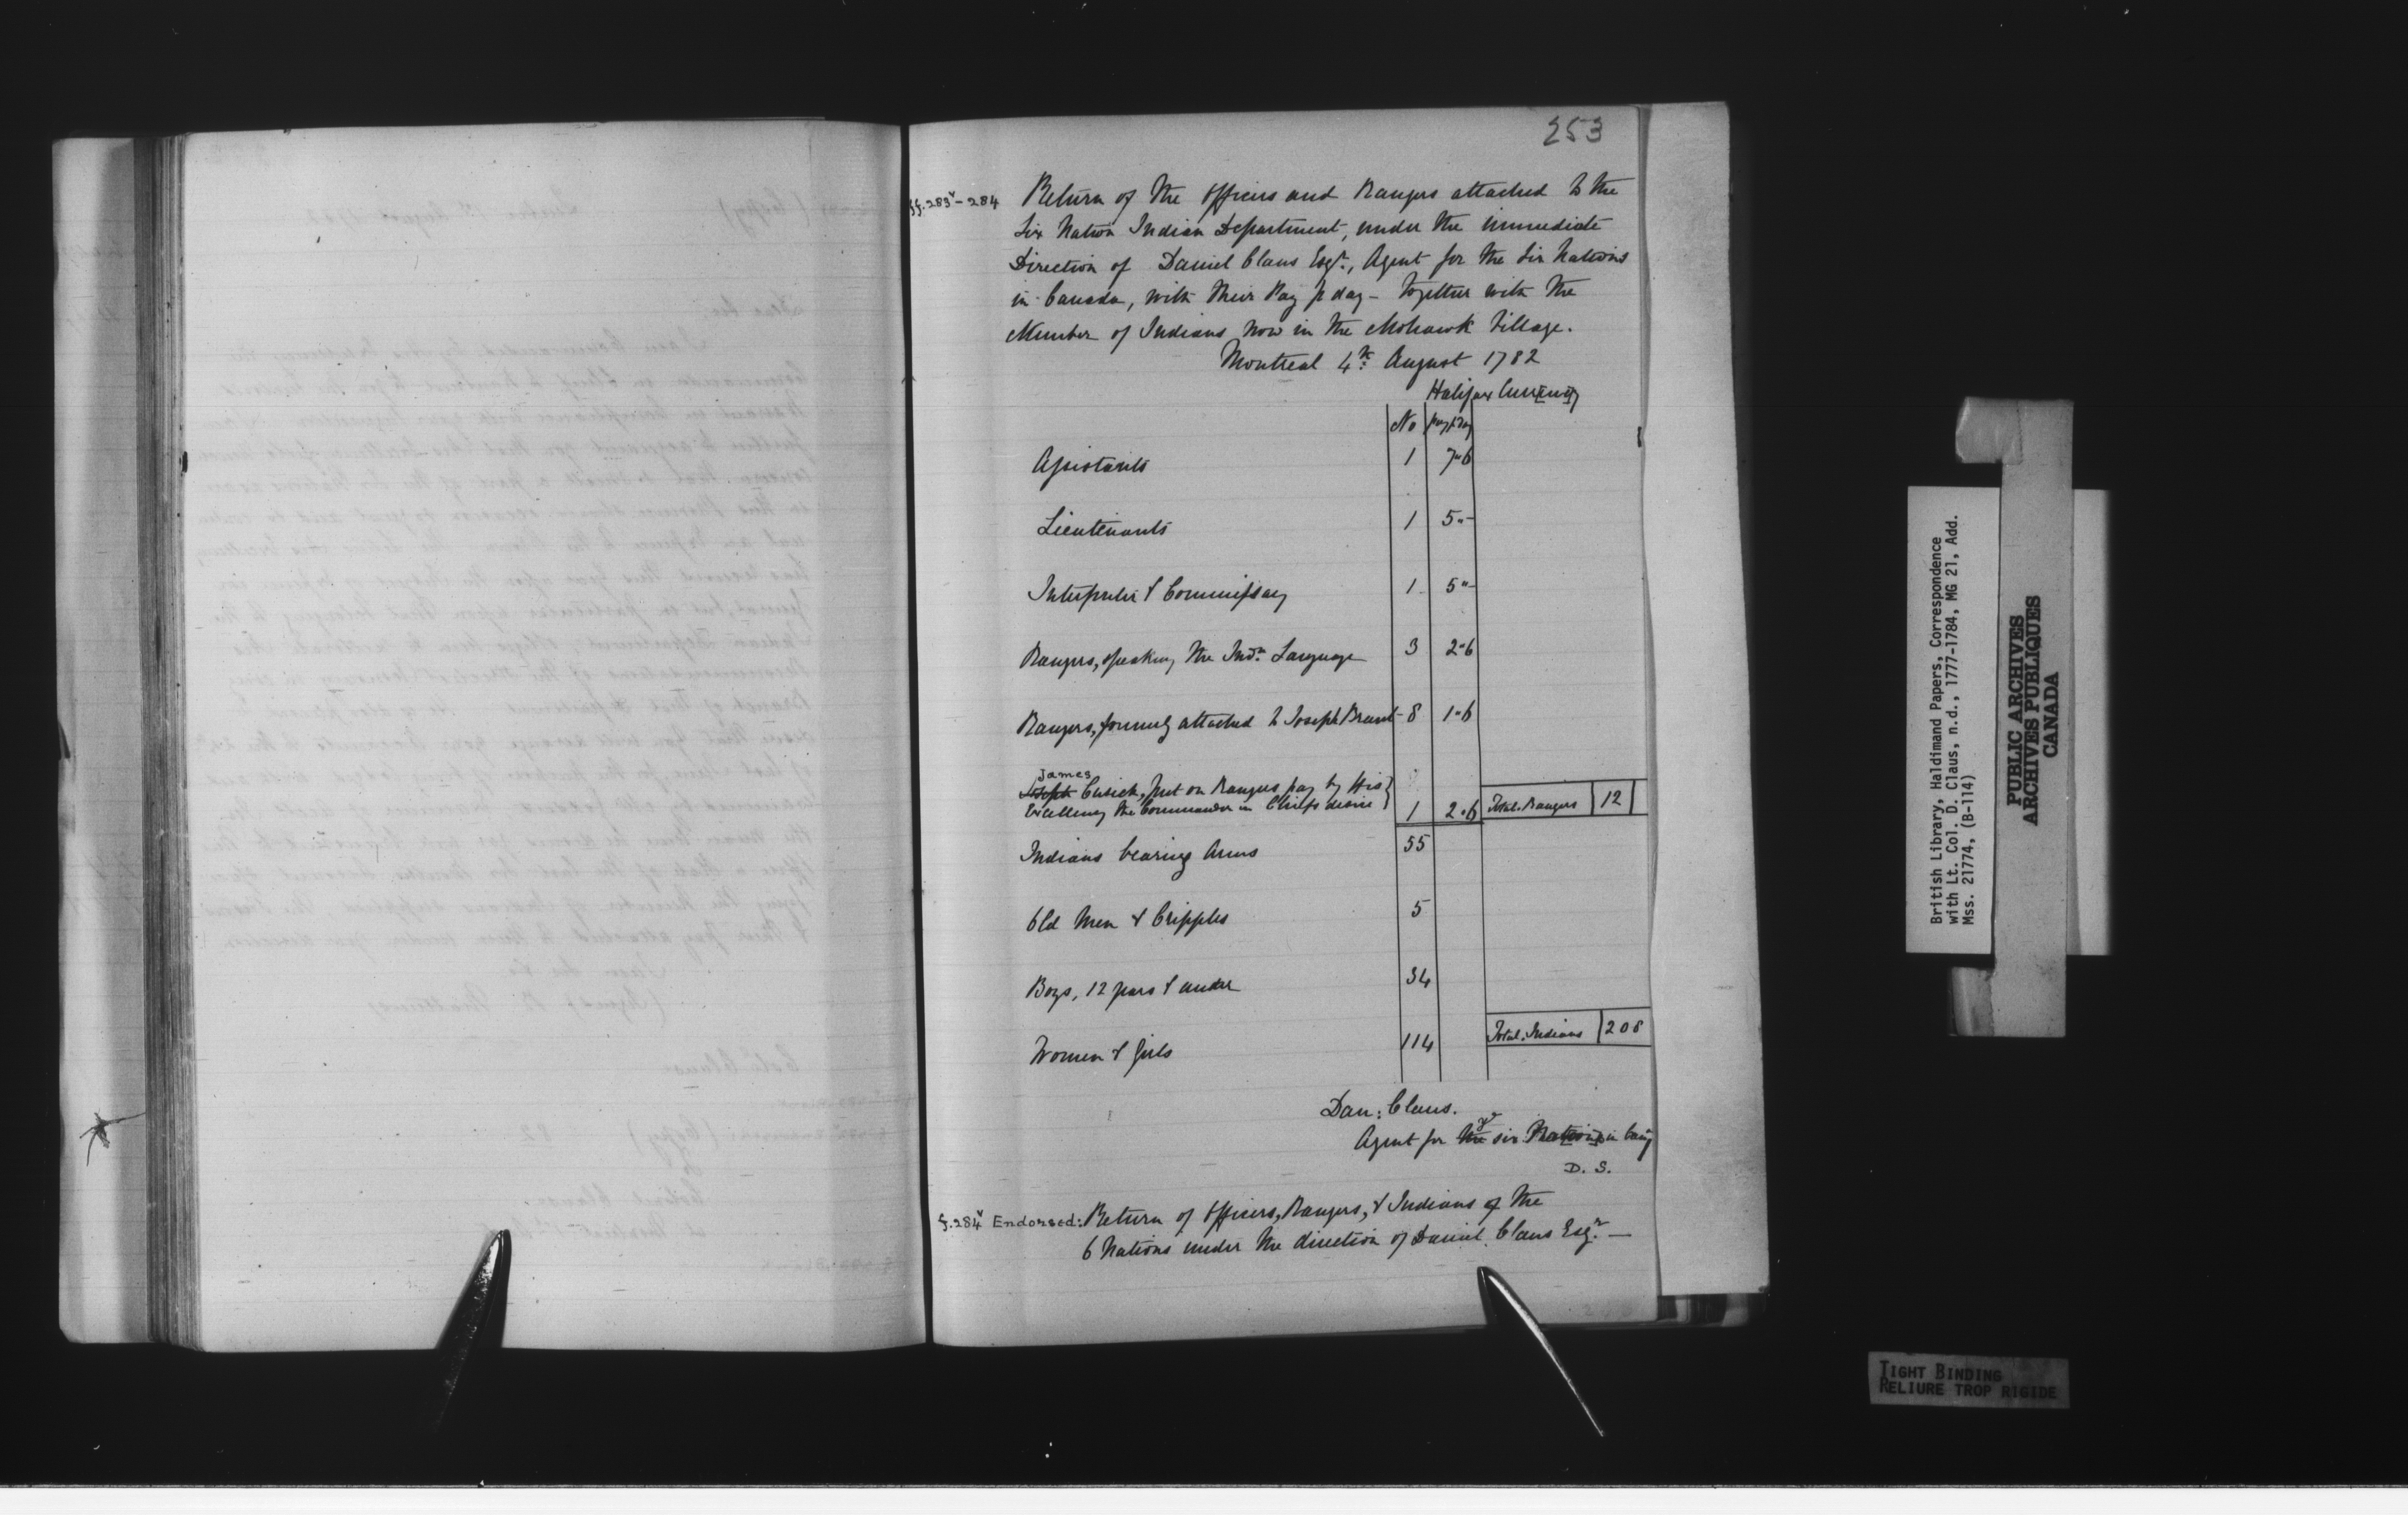 253
ff. 283v-284 Return of the Officers and Rangers attached to the
Six Nation Indian Department, under the immediate
Direction of Daniel Claus Esqr., Agent for the Six Nations
in Canada, with their Pay p day - together with the
Number of Indians now in the Mohawk Village.
Montreal 4th August 1782
Halifax Currency
No pay p Day
Assistants 1 7"6
Lieutenants 1 5"-
Interpreter & Commissary 1 5"-
Rangers, speaking the Indn. Language 3 2"6
Rangers, formerly attached to Joseph Brant - 8 1"6
James
Joseph Cusick, put on Rangers pay by His
Excellency the Commander in Chiefs desire 1 2"6 Total. Rangers 12
Indians bearing Arms 55
Old Men & Cripples 5
Boys, 12 years & under 34
Women & Girls 114 Total. Indians 208
Dan: Claus.
ye
Agent for the six Nations in
D. S.
f.284v Endorsed: Return of Officers, Rangers, & Indians of the
6 Nations under the direction of Daniel Claus Esqr. —
British Library, Haldimand Papers, Correspondence
with Lt. Col. D. Claus, n.d., 1777-1784, MG 21, Add.
Mss. 21774, (B-114)
PUBLIC ARCHIVES
ARCHIVES PUBLIQUES
CANADA
TIGHT BINDING
RELIURE TROP RIGIDE